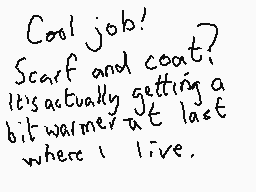 Cool job!
Scarf and coat?
It's actually getting a
bit warmer at last
where I live.